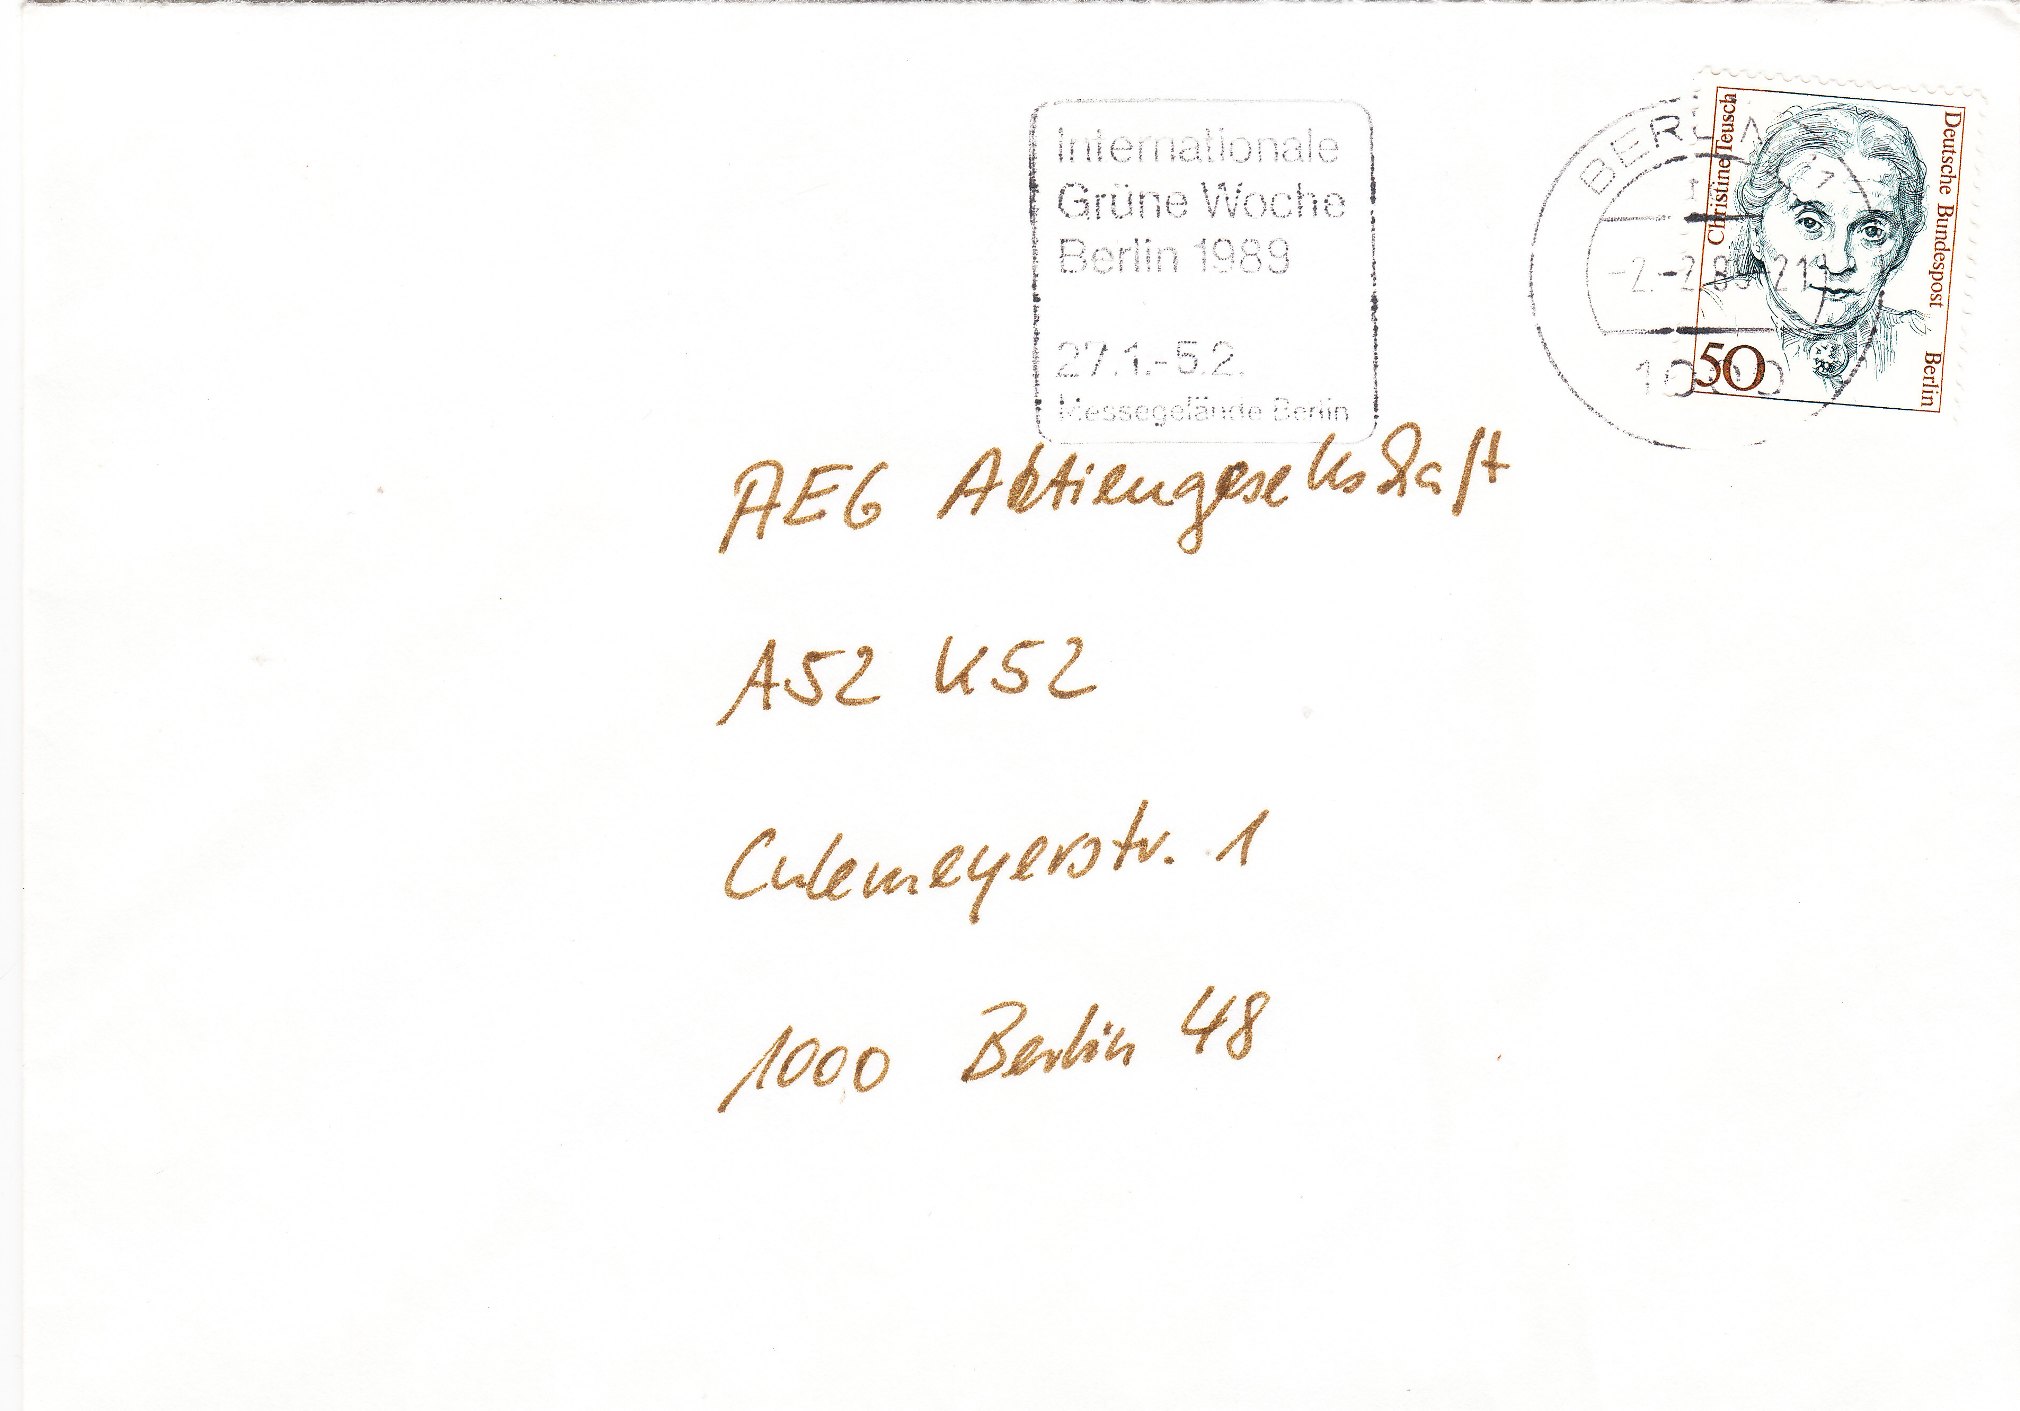 Internationale
Grüne Woche
Berlin 1989
27.1.-5.2.
Messegelände Berlin
BERLIN
-2.-2.89-21
1000
Christine Teusch
Deutsche Bundespost Berlin
50
AEG Aktiengesellschaft
A52 K52
Culemeyerstr. 1
1000 Berlin 48